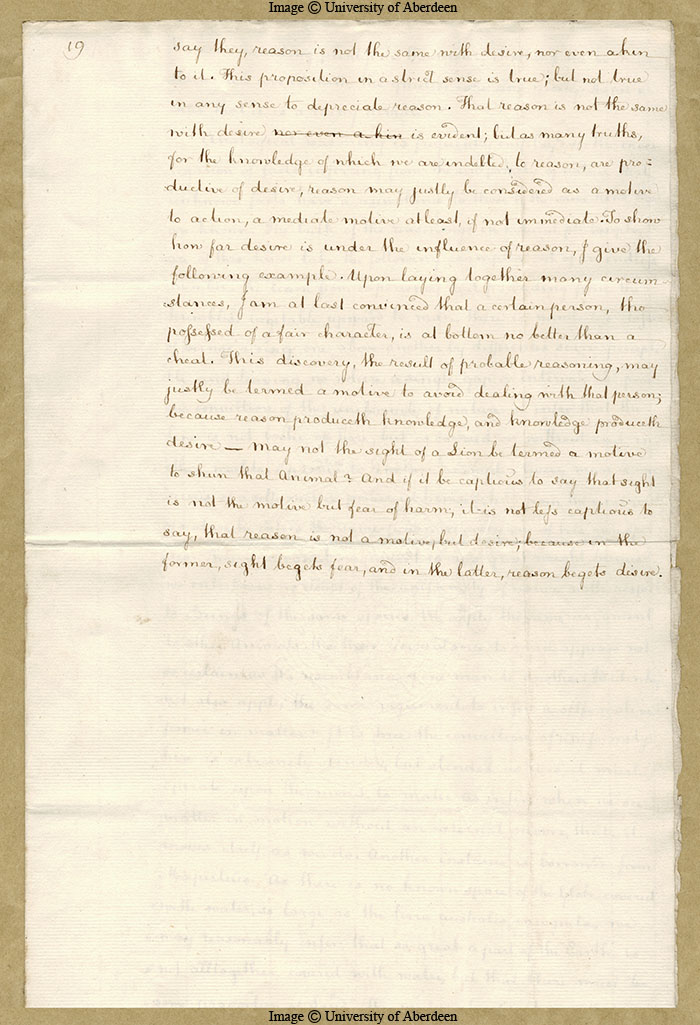 Image © University of Aberdeen
19
say they, reason is not the same with desire, nor even akin
to it. This proposition in a strict sense is true; but not true
in any sense to depreciate reason. That reason is not the same
with desire nor even a kin is evident; but as many truths,
for the knowledge of which we are indebted, to reason, are pro=
ductive of desire, reason may justly be considered as a motive
to action, a mediate motive at least, if not immediate. To show
how far desire is under the influence of reason, I give the
following example. Upon laying together many circum
stances, I am at last convinced that a certain person, tho
possessed of a fair character, is at bottom no better than a
cheat. This discovery, the result of probable reasoning, may
justly be termed a motive to avoid dealing with that person;
because reason produceth knowledge, and knowledge produceth
desire — may not the sight of a Lion be termed a motive
to shun that Animal? And if it be captious to say that sight
is not the motive but fear of harm, it is not less captious to
say, that reason is not a motive, but desire; because in the
former, sight begets fear, and in the latter, reason begets desire.
Image © University of Aberdeen